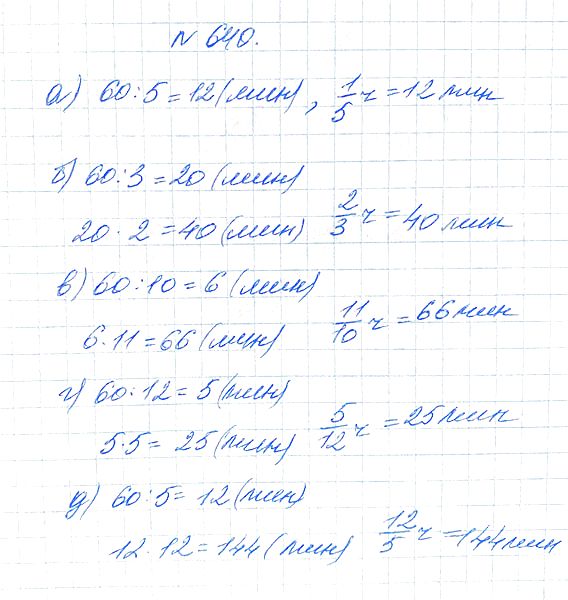 № 640.
а) 60:5=12(мин), 1/5 ч = 12 мин
б) 60:3=20(мин)
20·2=40(мин) 2/3 ч = 40 мин
в) 60:10=6(мин)
6·11=66(мин) 11/10 ч = 66 мин
г) 60:12=5(мин)
5·5=25(мин) 5/12 ч = 25 мин
д) 60:5=12(мин)
12·12=144(мин) 12/5 ч = 144 мин